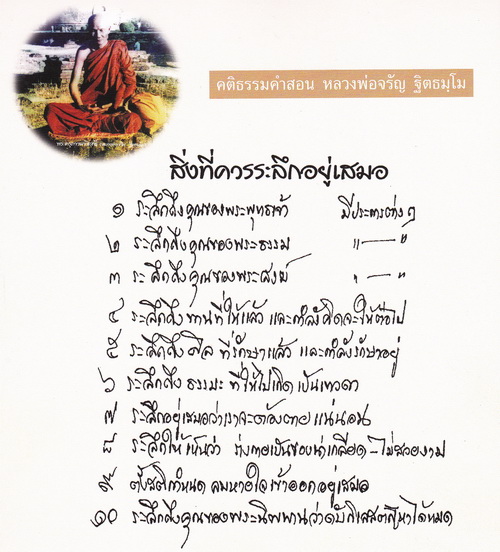 คติธรรมคำสอน หลวงพ่อจรัญ ฐิตธมฺโม
สิ่งที่ควรระลึกอยู่เสมอ
๑ ระลึกถึงคุณของพระพุทธเจ้า มีประการต่างๆ
๒ ระลึกถึงคุณของพระธรรม " — "
๓ ระลึกถึงคุณของพระสงฆ์ " — "
๔ ระลึกถึงทานที่ให้แล้ว และกำลังคิดจะให้ต่อไป
๕ ระลึกถึงศีล ที่รักษาแล้ว และกำลังรักษาอยู่
๖ ระลึกถึง ธรรมะ ที่ให้ไปเกิดเป็นเทวดา
๗ ระลึกอยู่เสมอว่าเราจะต้องตาย แน่นอน
๘ ระลึกให้เห็นว่า ร่างกายเป็นของน่าเกลียด-ไม่สวยงาม
๙ ตั้งสติกำหนด ลมหายใจเข้าออกอยู่เสมอ
๑๐ ระลึกถึงคุณของพระนิพพานว่าดับกิเลสตัณหาได้หมด